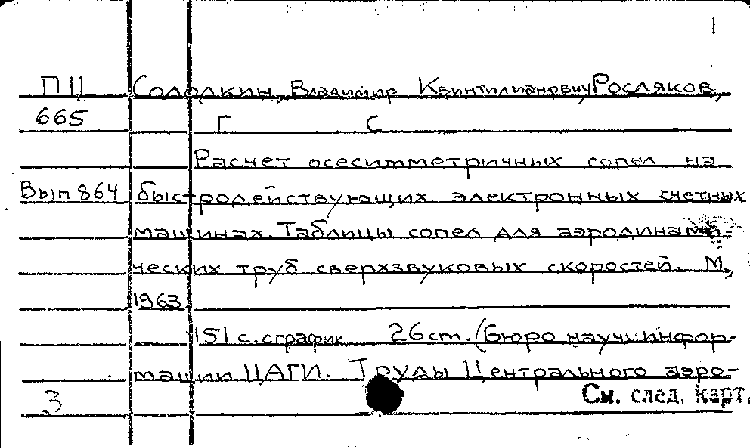 П11 Солодкин, Владимир Квинтилианович, Росляков,
665 Г С
Расчет осесимметричных сопел на
Вып 864 быстродействующих электронных счетных
машинах. Таблицы сопел для аэродинами-
ческих труб сверхзвуковых скоростей. М,
1963
151 с. с график 26 см. (Бюро научн. инфор-
мации ЦАГИ. Труды Центрального аэро-
3 См. след. карт.